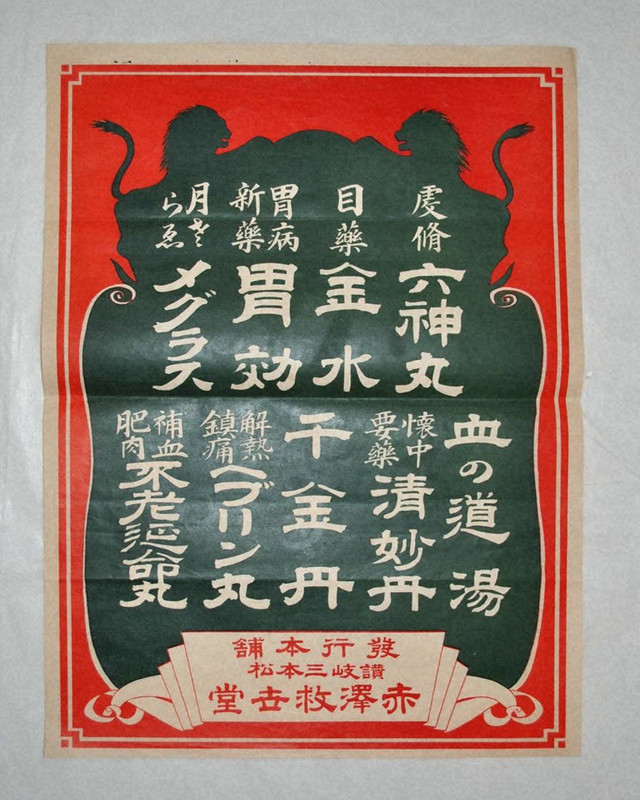 虔脩
六神丸
目藥
金水
胃病
新藥
胃効
月ざ
らゑ
メグラス
血の道湯
懐中
要藥
清妙丹
千金丹
解熱
鎮痛
ヘブリン丸
補血
肥肉
不老延命丸
發行本舖
讚岐三本松
赤澤救世堂